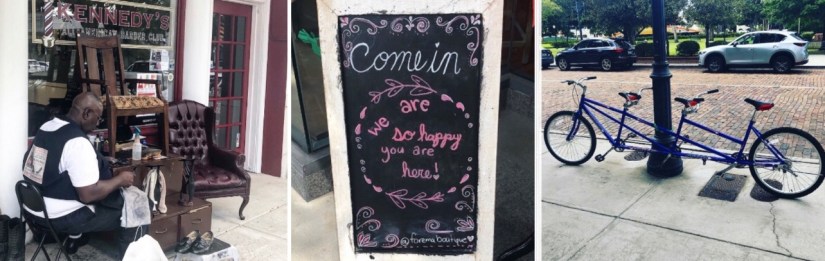 KENNEDY'S
ALL AMERICAN BARBER CLUB
Come in
we are
so happy
you are
here!
@foremaboutique